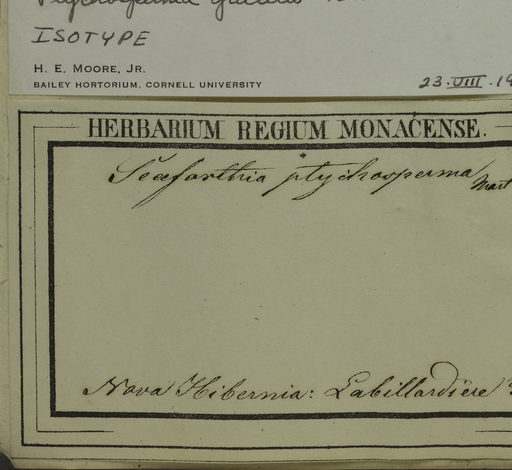 Ptychosperma gracilis
ISOTYPE
H. E. MOORE, JR.
BAILEY HORTORIUM, CORNELL UNIVERSITY
23.VIII.19
HERBARIUM REGIUM MONACENSE.
Seaforthia ptychosperma Mart
Nova Hibernia: Labillardière